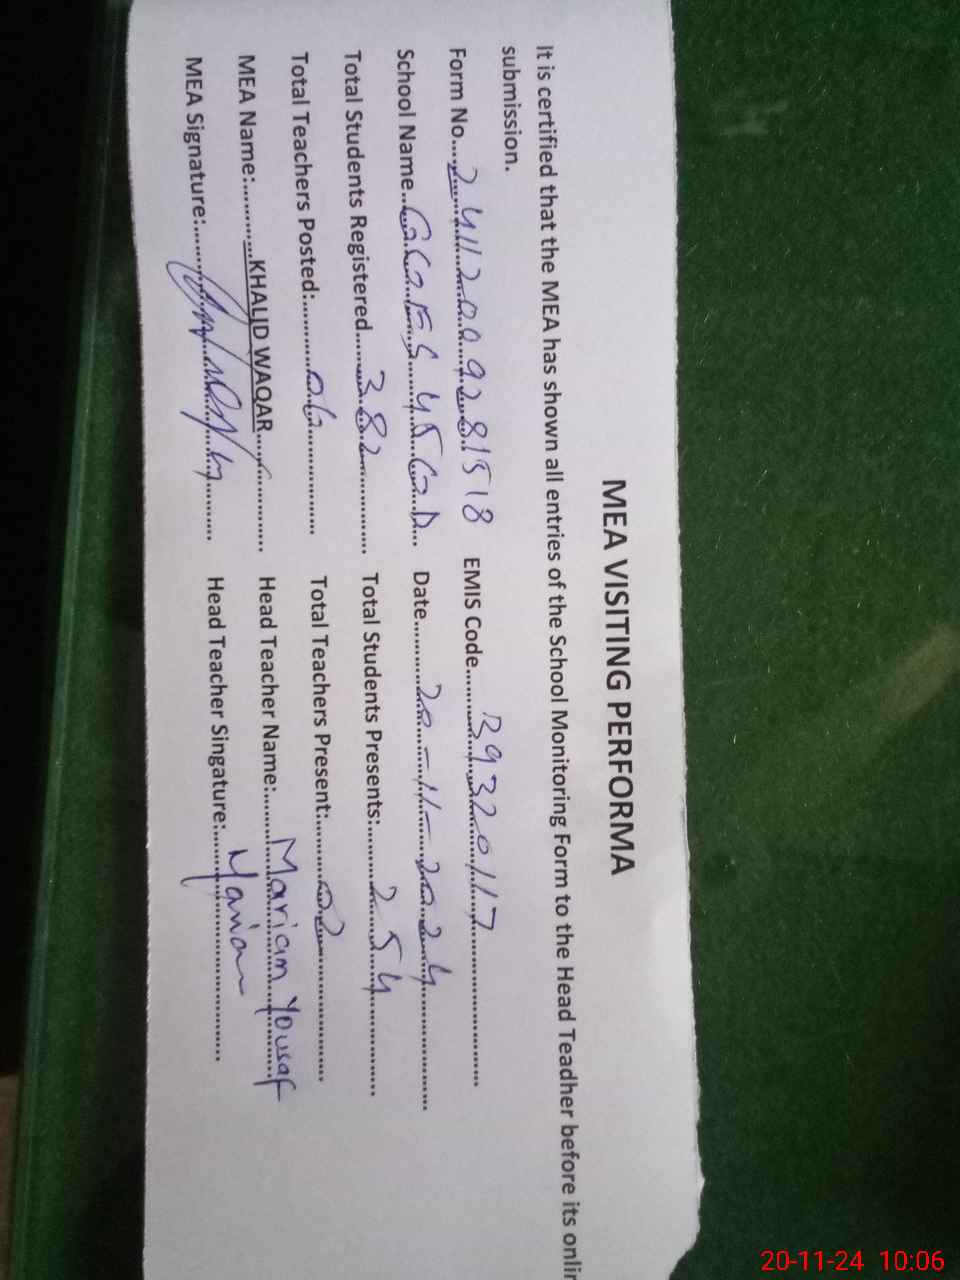 MEA VISITING PERFORMA
It is certified that the MEA has shown all entries of the School Monitoring Form to the Head Teadher before its onlin
submission.
Form No....24112009281518 EMIS Code........39320117
School Name...GGES 45 GD... Date..........20-11-2024
Total Students Registered......382 Total Students Presents:.........254
Total Teachers Posted:..........06 Total Teachers Present:........02
MEA Name:..........KHALID WAQAR Head Teacher Name:.........Mariam Yousaf
MEA Signature:.......... Head Teacher Singature:.......... Mariam
20-11-24 10:06